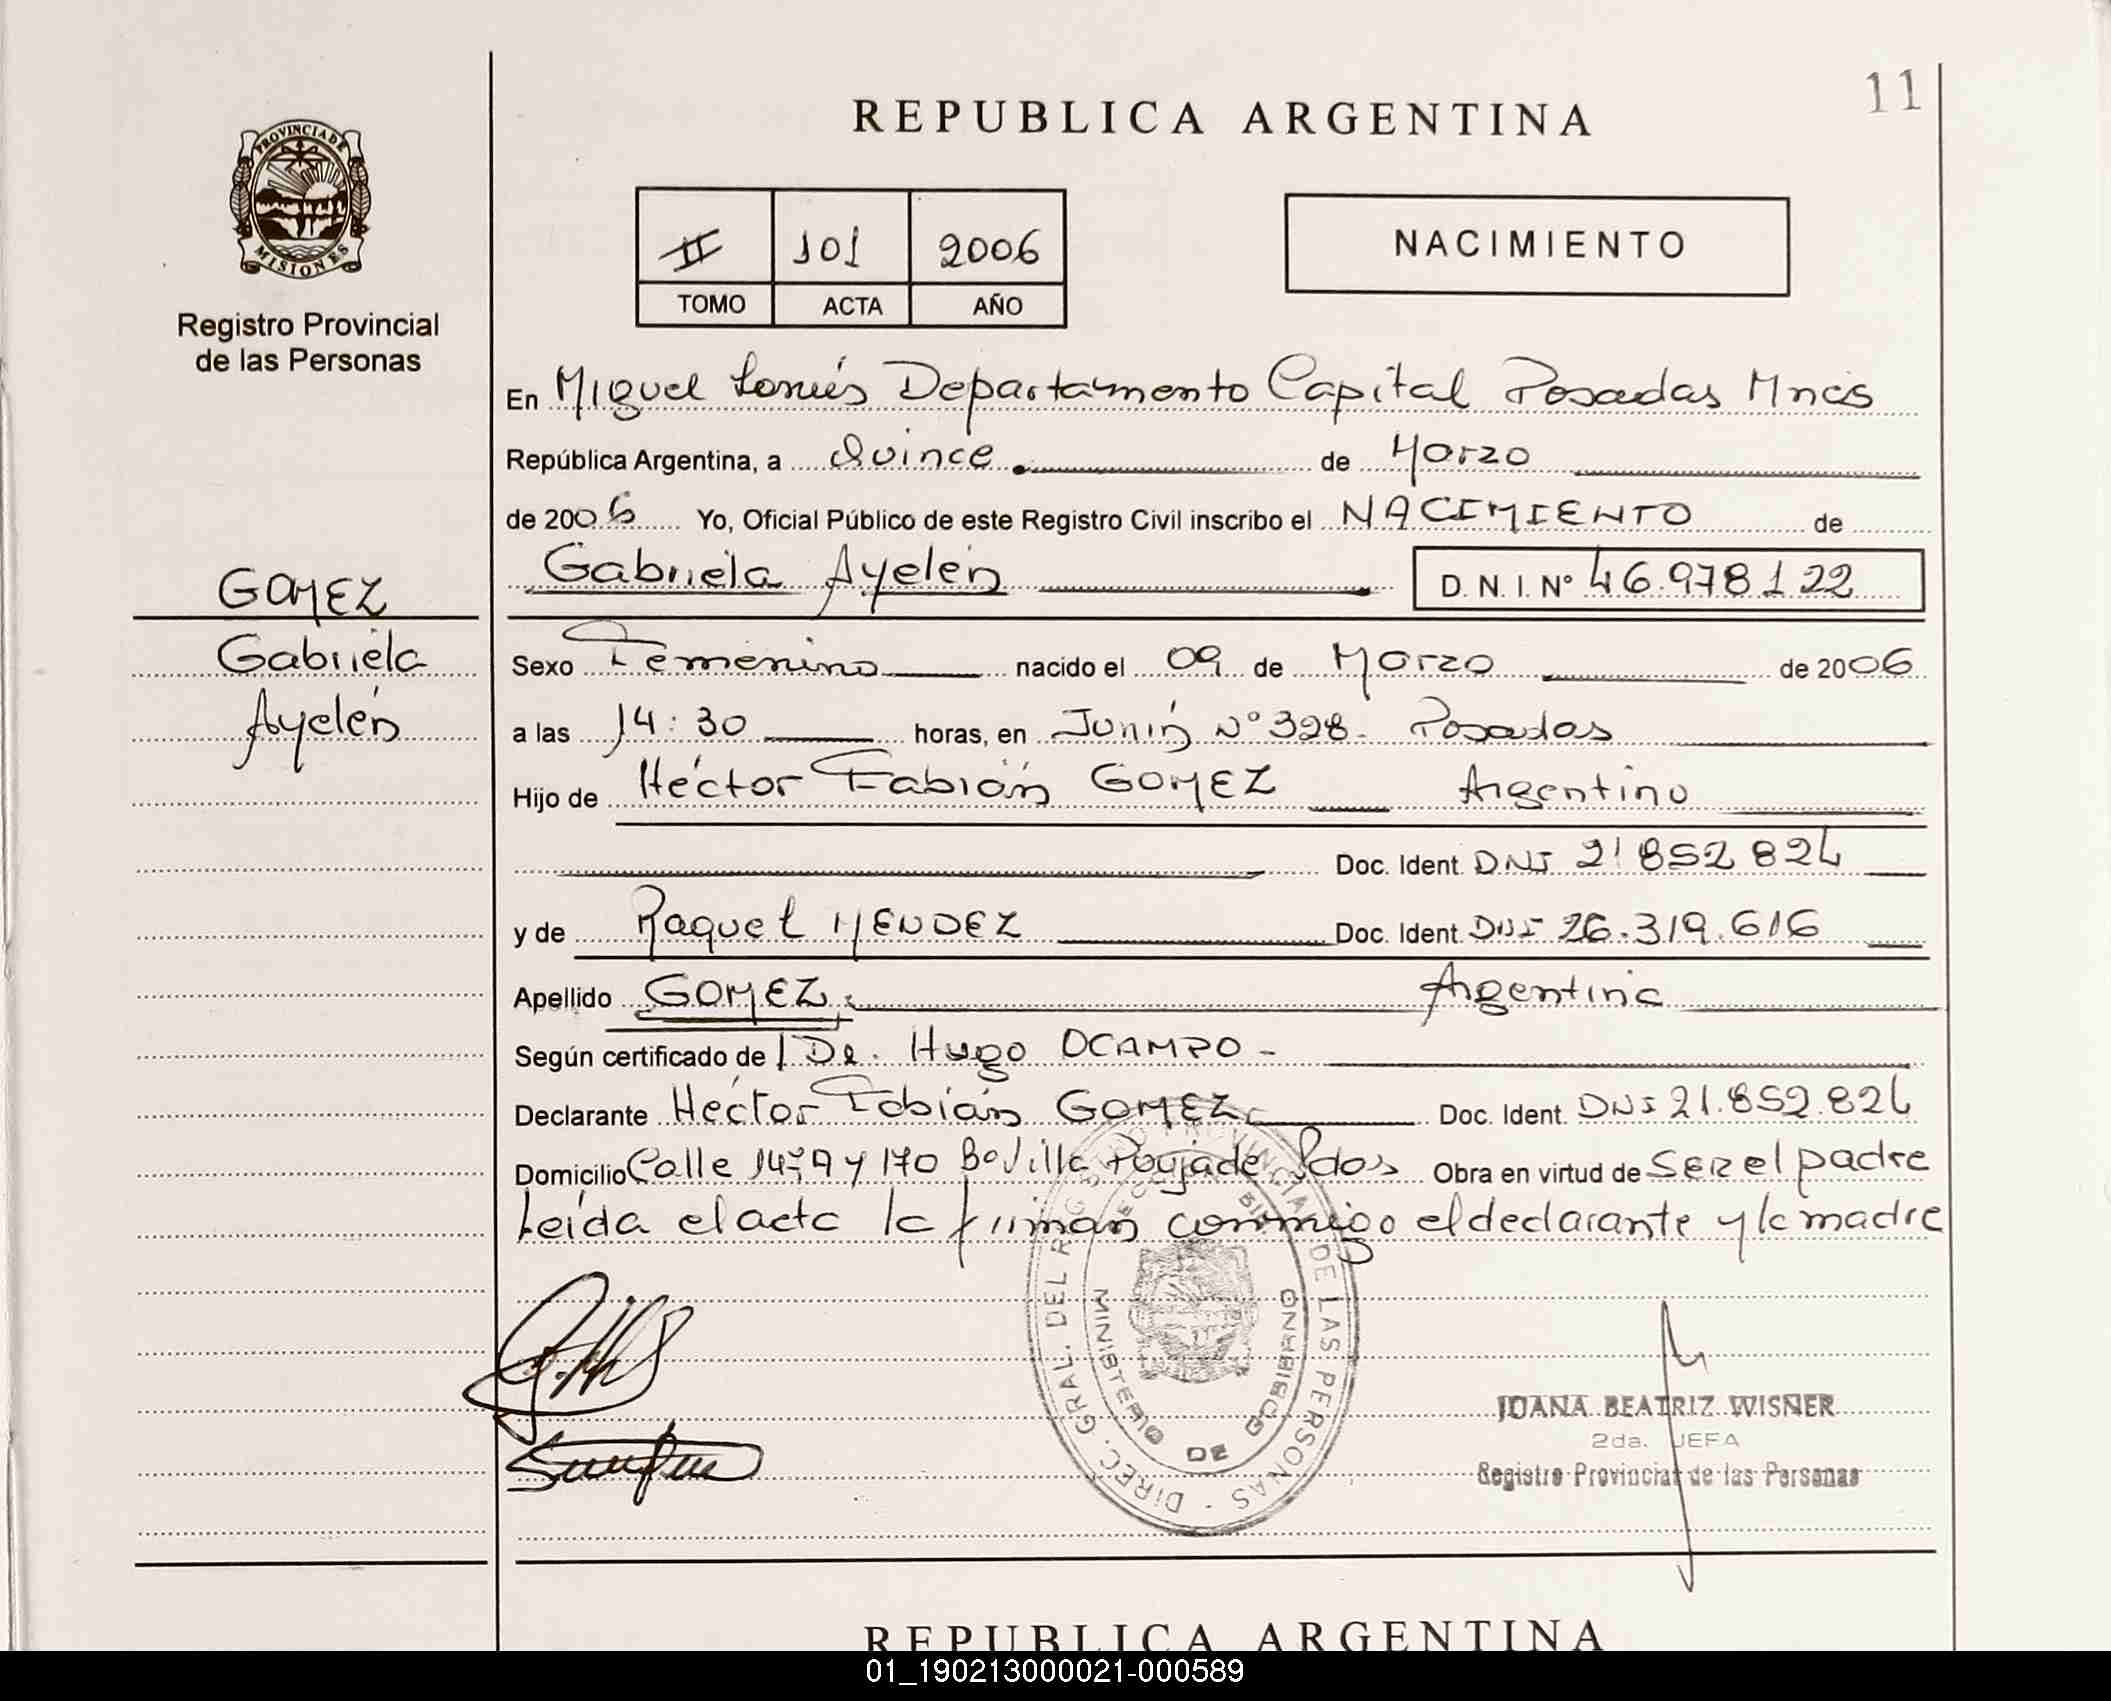 11
REPUBLICA ARGENTINA
PROVINCIA DE
MISIONES
Registro Provincial
de las Personas
II 101 2006
TOMO ACTA AÑO
NACIMIENTO
En Miguel Lanús Departamento Capital Posadas Mnes
República Argentina, a Quince de Marzo
de 2006 Yo, Oficial Público de este Registro Civil inscribo el NACIMIENTO de
Gabriela Ayelén D. N. I. Nº 46.978.122
GOMEZ
Gabriela
Ayelén
Sexo Femenino nacido el 09 de Marzo de 2006
a las 14:30 horas, en Junín Nº 328- Posadas
Hijo de Héctor Fabián GOMEZ Argentino
Doc. Ident. DNI 21852826
y de Raquel MENDEZ Doc. Ident. DNI 26.319.616
Apellido GOMEZ Argentina
Según certificado de Dr. Hugo OCAMPO -
Declarante Héctor Fabián GOMEZ Doc. Ident. DNI 21.852.826
Domicilio Calle 147A y 170 Bo Villa Poujade Pdas Obra en virtud de ser el padre
Leída el acta la firman conmigo el declarante y la madre
DIREC. GRAL. DEL REGISTRO PROVINCIAL DE LAS PERSONAS
MINISTERIO DE GOBIERNO
JOANA BEATRIZ WISNER
2da. JEFA
Registro Provincial de las Personas
REPUBLICA ARGENTINA
01_190213000021-000589